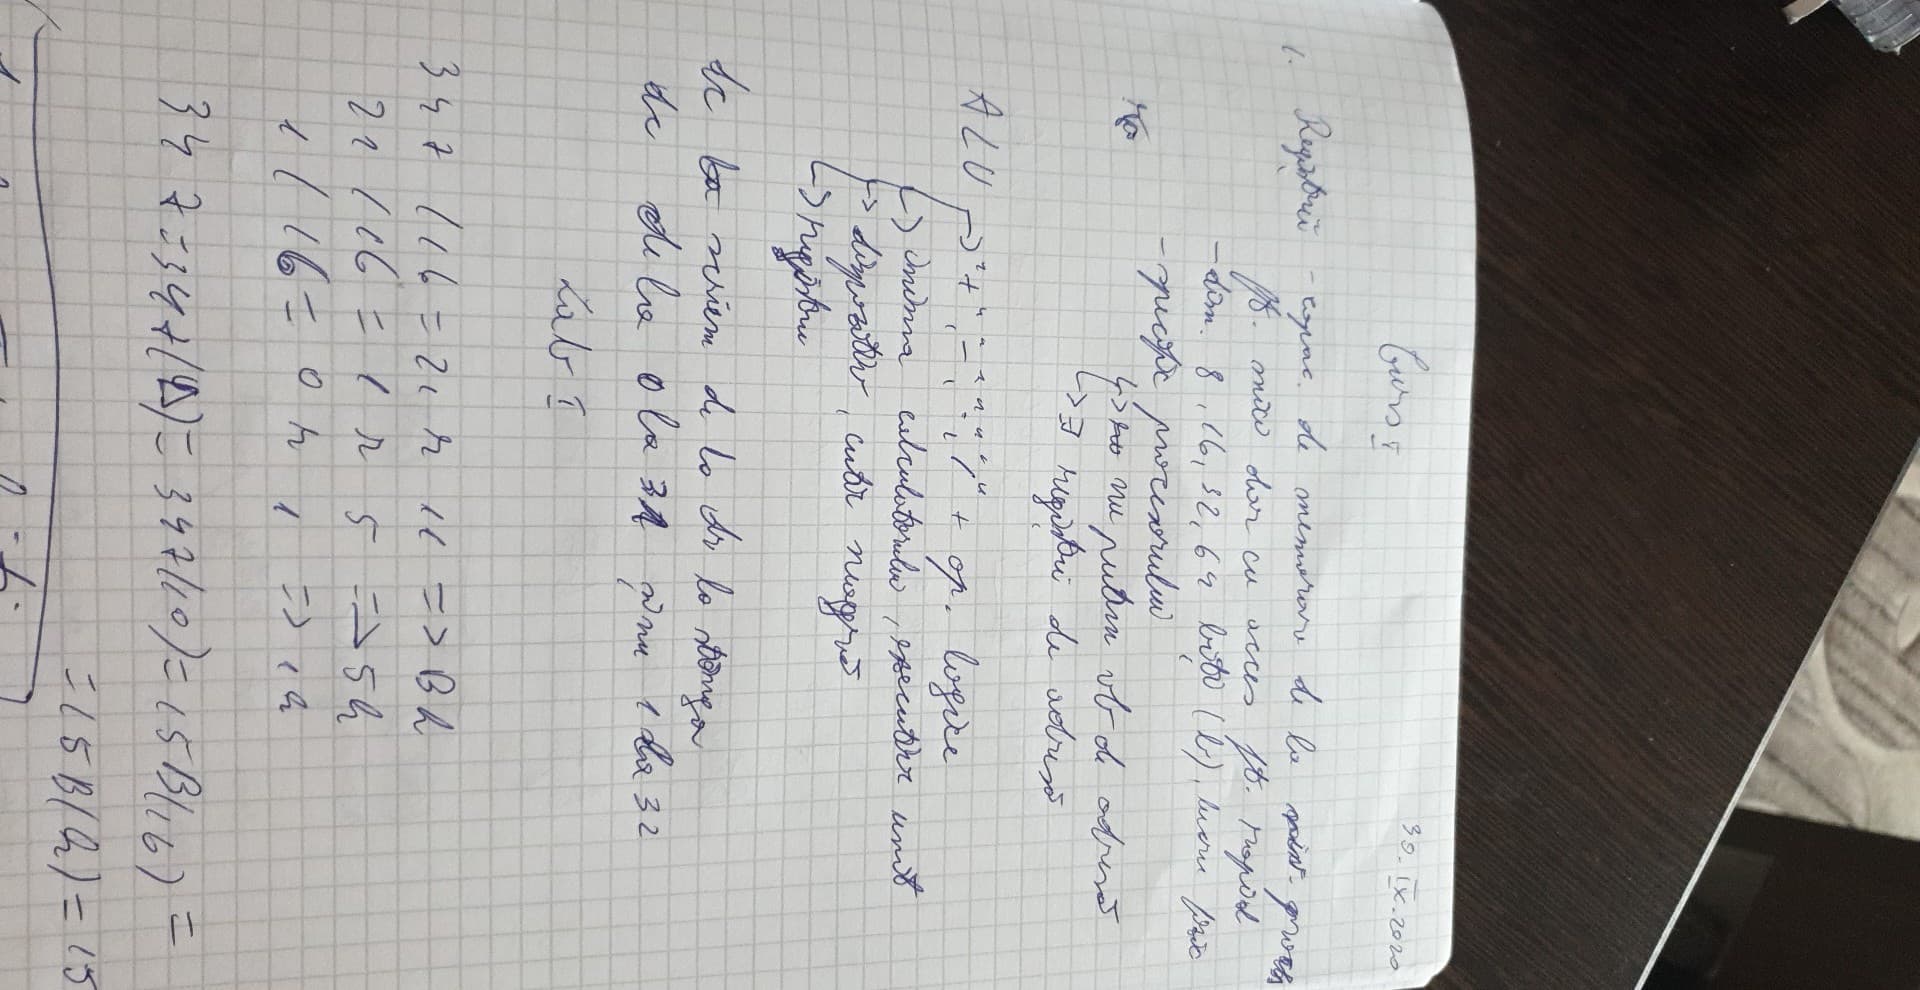 Curs I
30.IX.2020
1. Regiștrii - capac. de memorare de la
ft. mică dar cu acces ft. rapid
- dim. 8, 16, 32, 64 biți (b), lucru fizic
- specific procesorului
↳> nu putem vb de adresă
↳> ∃ regiștrii de adresă
ALU -> "+", "-", "·", "/" + op. logice
-> inima calculatorului, executive unit
-> dispozitiv, cutie neagră
-> registru
dc scriem de la dr la stânga
dc de la 0 la 31 și nu 1 la 32
Lab I
347 / 16 = 21 r 11 => Bh
21 / 16 = 1 r 5 => 5h
1 / 16 = 0 r 1 => 1h
347 = 347(D) = 347(10) = 15B(16) =
= 15B(h) = 15